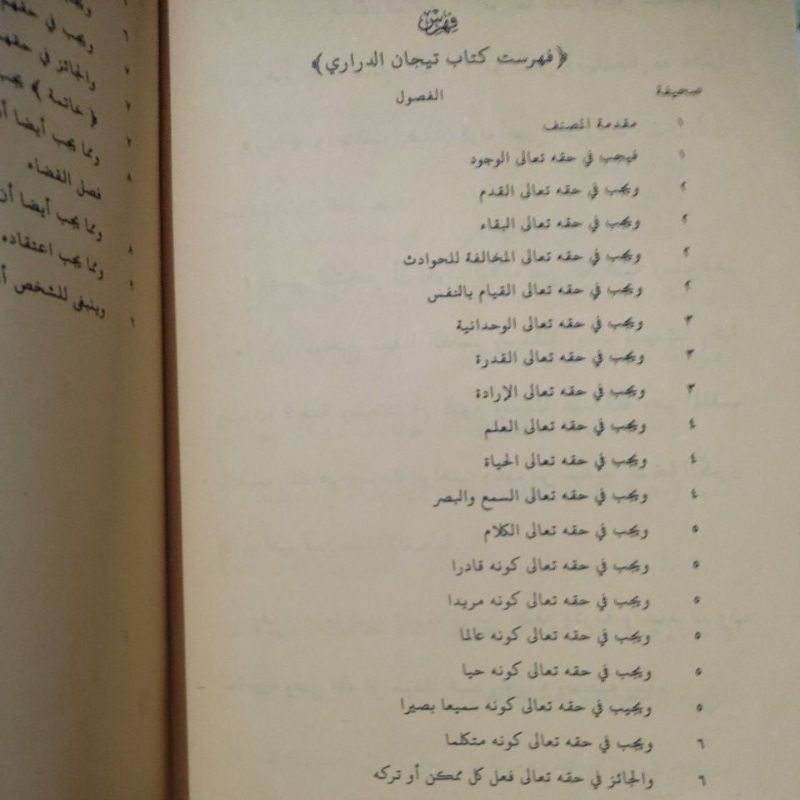 فهرس
﴿فهرست كتاب تيجان الدراري﴾
صحيفة الفصول
١ مقدمة المصنف
١ فيجب في حقه تعالى الوجود
٢ ويجب في حقه تعالى القدم
٢ ويجب في حقه تعالى البقاء
٢ ويجب في حقه تعالى المخالفة للحوادث
٢ ويجب في حقه تعالى القيام بالنفس
٣ ويجب في حقه تعالى الوحدانية
٣ ويجب في حقه تعالى القدرة
٣ ويجب في حقه تعالى الإرادة
٤ ويجب في حقه تعالى العلم
٤ ويجب في حقه تعالى الحياة
٤ ويجب في حقه تعالى السمع والبصر
٥ ويجب في حقه تعالى الكلام
٥ ويجب في حقه تعالى كونه قادرا
٥ ويجب في حقه تعالى كونه مريدا
٥ ويجب في حقه تعالى كونه عالما
٥ ويجب في حقه تعالى كونه حيا
٥ ويجيب في حقه تعالى كونه سميعا بصيرا
٦ ويجب في حقه تعالى كونه متكلما
٦ والجائز في حقه تعالى فعل كل ممكن أو تركه
٦ ويجب في حقهم
٧ والجائز في حقهم
٧ ﴿خاتمة﴾ يجب
٧ ومما يجب أيضا أن
٨ فصل القضاء
ومما يجب أيضا أن
٨ ومما يجب اعتقاده
٩ وينبغي للشخص
٩